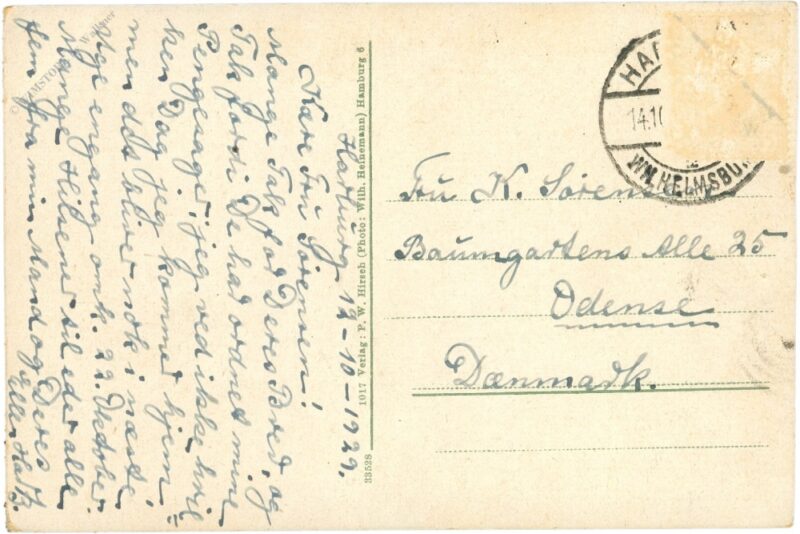 Harburg 12-10-1929.
Kære Fru Sørensen!
Mange Tak for Deres Brev, og
Tak fordi De har ordnet mine
Pengesager, jeg ved ikke hvil
ken Dag jeg kommer hjem =
men det bliver nok i næste
Uge engang omk. 22. Oktober.
Mange Hilsener til eder alle
fem fra min Mand og Deres
Ellen
33528
1017 Verlag: P. W. Hirsch (Photo: Wilh. Heinemann) Hamburg 6
HAR
14.10
WILHELMSBU
Fru K. Søren
Baumgartens Alle 25
Odense
Dænmark.